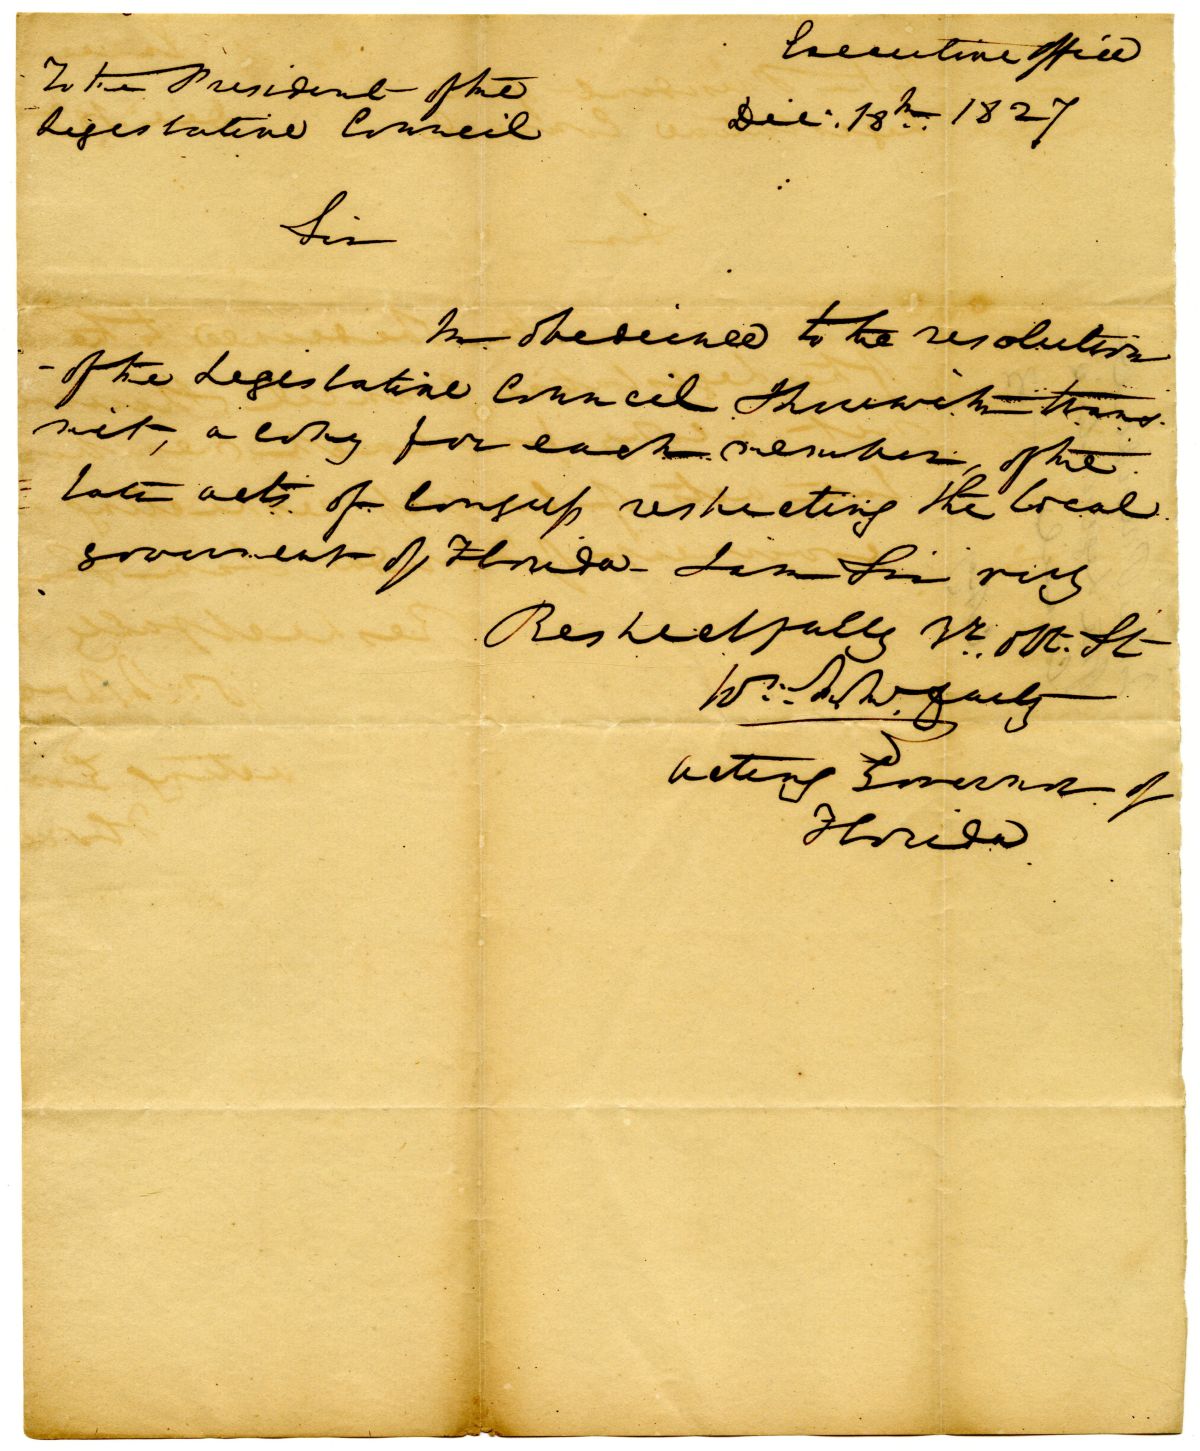 Executive office
To the President of the
Legislative Council
Dec. 18th 1827
Sir
In obedience to the resolution
of the Legislative Council I herewith trans
mit, a copy for each member, of the
late acts of Congress respecting the local
government of Florida - I am Sir very
Respectfully yr. obt. St
Wm. M. McCarty
acting Governor of
Florida